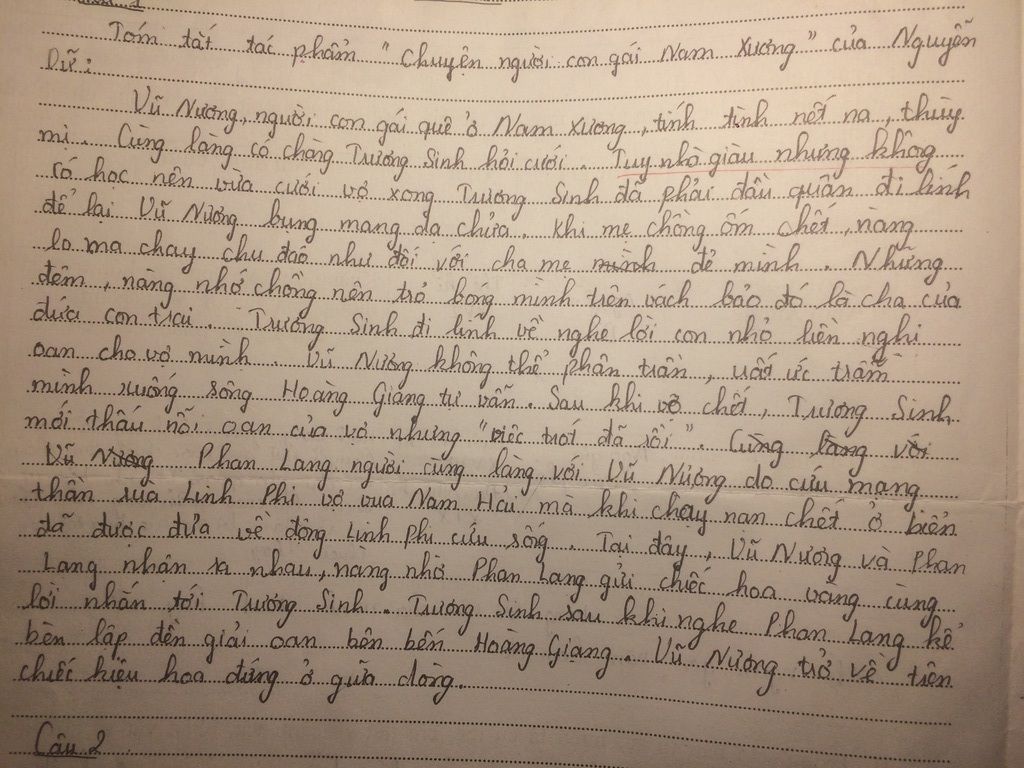 Tóm tắt tác phẩm "Chuyện người con gái Nam Xương" của Nguyễn
Dữ:
Vũ Nương, người con gái quê ở Nam Xương, tính tình nết na, thùy
mị. Cùng làng có chàng Trương Sinh hỏi cưới. Tuy nhà giàu nhưng không
có học nên vừa cưới vợ xong Trương Sinh đã phải đầu quân đi lính
để lại Vũ Nương bụng mang dạ chửa. Khi mẹ chồng ốm chết, nàng
lo ma chay chu đáo như đối với cha mẹ mình đẻ mình. Những
đêm, nàng nhớ chồng nên trỏ bóng mình trên vách bảo đó là cha của
đứa con trai. Trương Sinh đi lính về nghe lời con nhỏ liền nghi
oan cho vợ mình. Vũ Nương không thể phân trần, uất ức trầm
mình xuống sông Hoàng Giang tự vẫn. Sau khi vợ chết, Trương Sinh
mới thấu nỗi oan của vợ nhưng "việc trót đã rồi". Cùng làng với
Vũ Nương Phan Lang người cùng làng với Vũ Nương do cứu mạng
thần rùa Linh Phi vợ vua Nam Hải mà khi chạy nạn chết ở biển
đã được đưa về động Linh Phi cứu sống. Tại đây, Vũ Nương và Phan
Lang nhận ra nhau, nàng nhờ Phan Lang gửi chiếc hoa vàng cùng
lời nhắn tới Trương Sinh. Trương Sinh sau khi nghe Phan Lang kể
bèn lập đền giải oan bên bến Hoàng Giang. Vũ Nương trở về trên
chiếc kiệu hoa đứng ở giữa dòng.
Câu 2